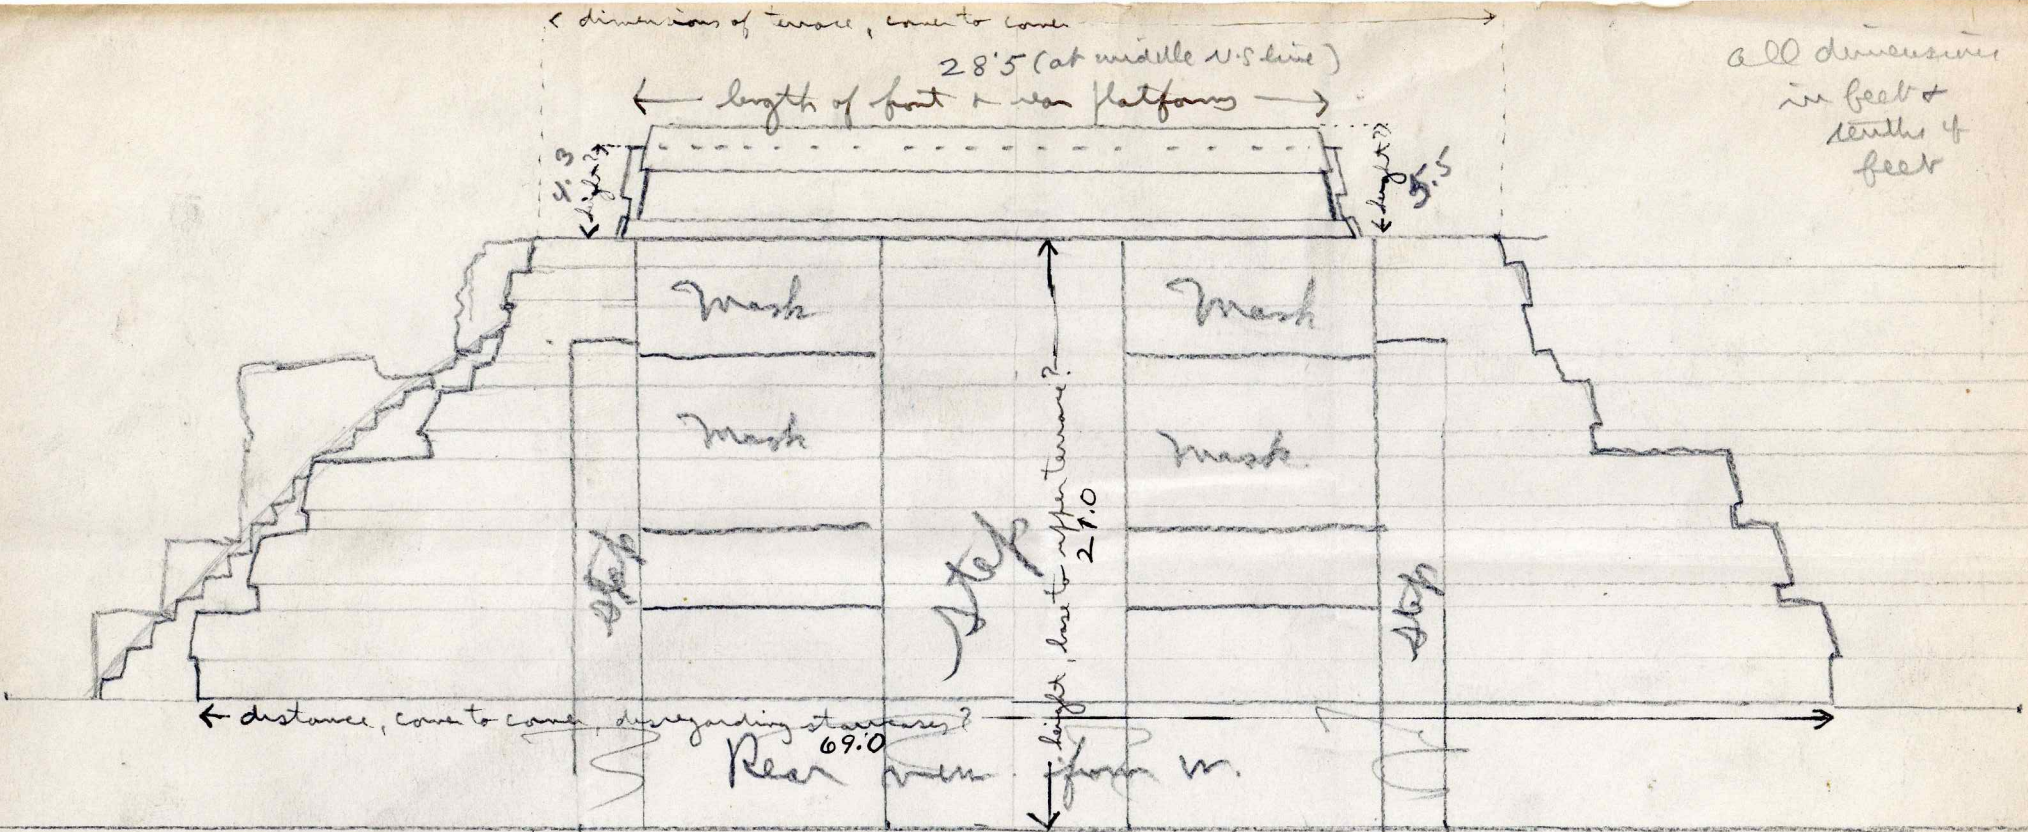 dimensions of terrace, corner to corner
28.5 (at middle N.S line)
length of front & rear platforms
all dimensions
in feet &
tenths of
feet
4.3
height?
height?
5.5
Mask
Mask
Mask
Mask
Step
Step
Step
height, base to upper terrace?
distance, corner to corner, disregarding staircases?
69.0
Rear view from W.